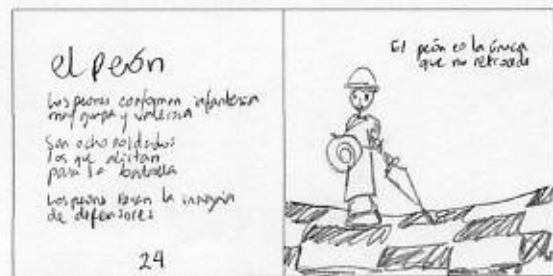 el peón
Los peones conforman infantería
muy guapa y valerosa
Son ocho soldados
los que alistan
para la batalla
Los peones llevan la insignia
de defensores
24
El peón es la única
que no retrocede